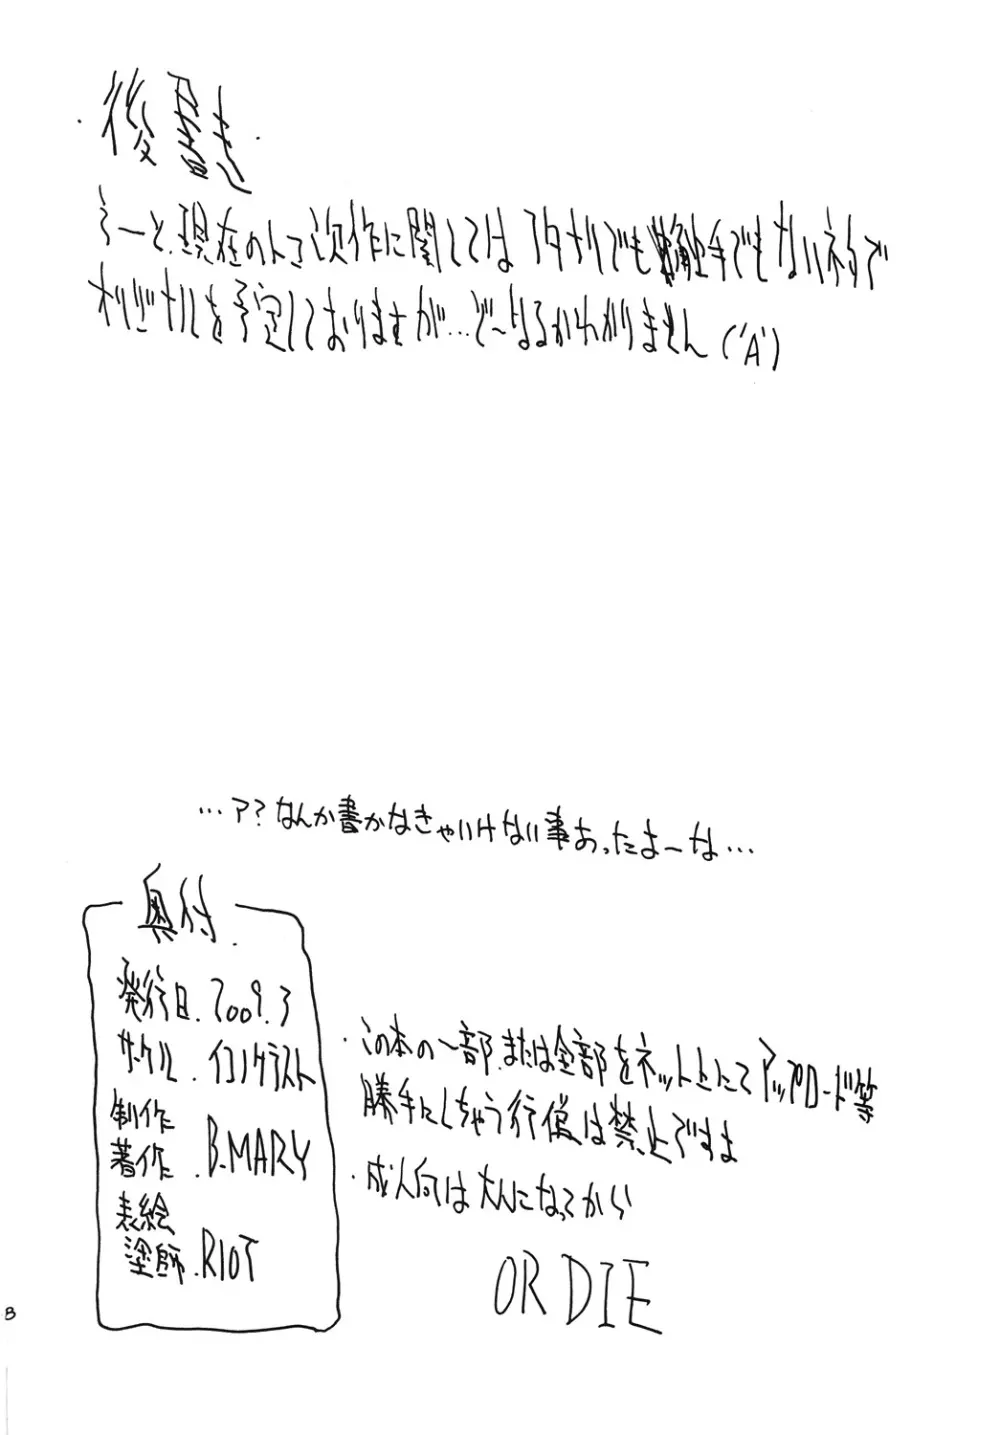 ・後書き・
うーと、現在のトコ次作に関しては フタナリでも触手でもないネタで
オリジナルを予定しておりますが…ど〜なるかわかりません('A')
…ア?なんか書かなきゃいけない事あったよーな…
奥付.
発行日.2009.3
サークル.イコノクラスト
制作
著作.B.MARY
表絵
塗師.RIOT
・この本の一部.または全部をネット上にてアップロード等
勝手にしちゃう行儀は禁止ですよ
・成人向は大人になってから
OR DIE
8